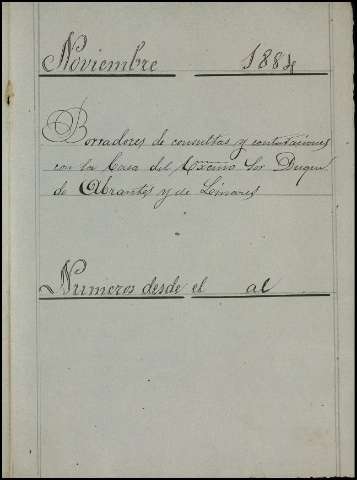 Noviembre 1884
Borradores de consultas y contestaciones
con la Casa del Excmo Sor Duque
de Abrantes y de Linares
Numeros desde el al